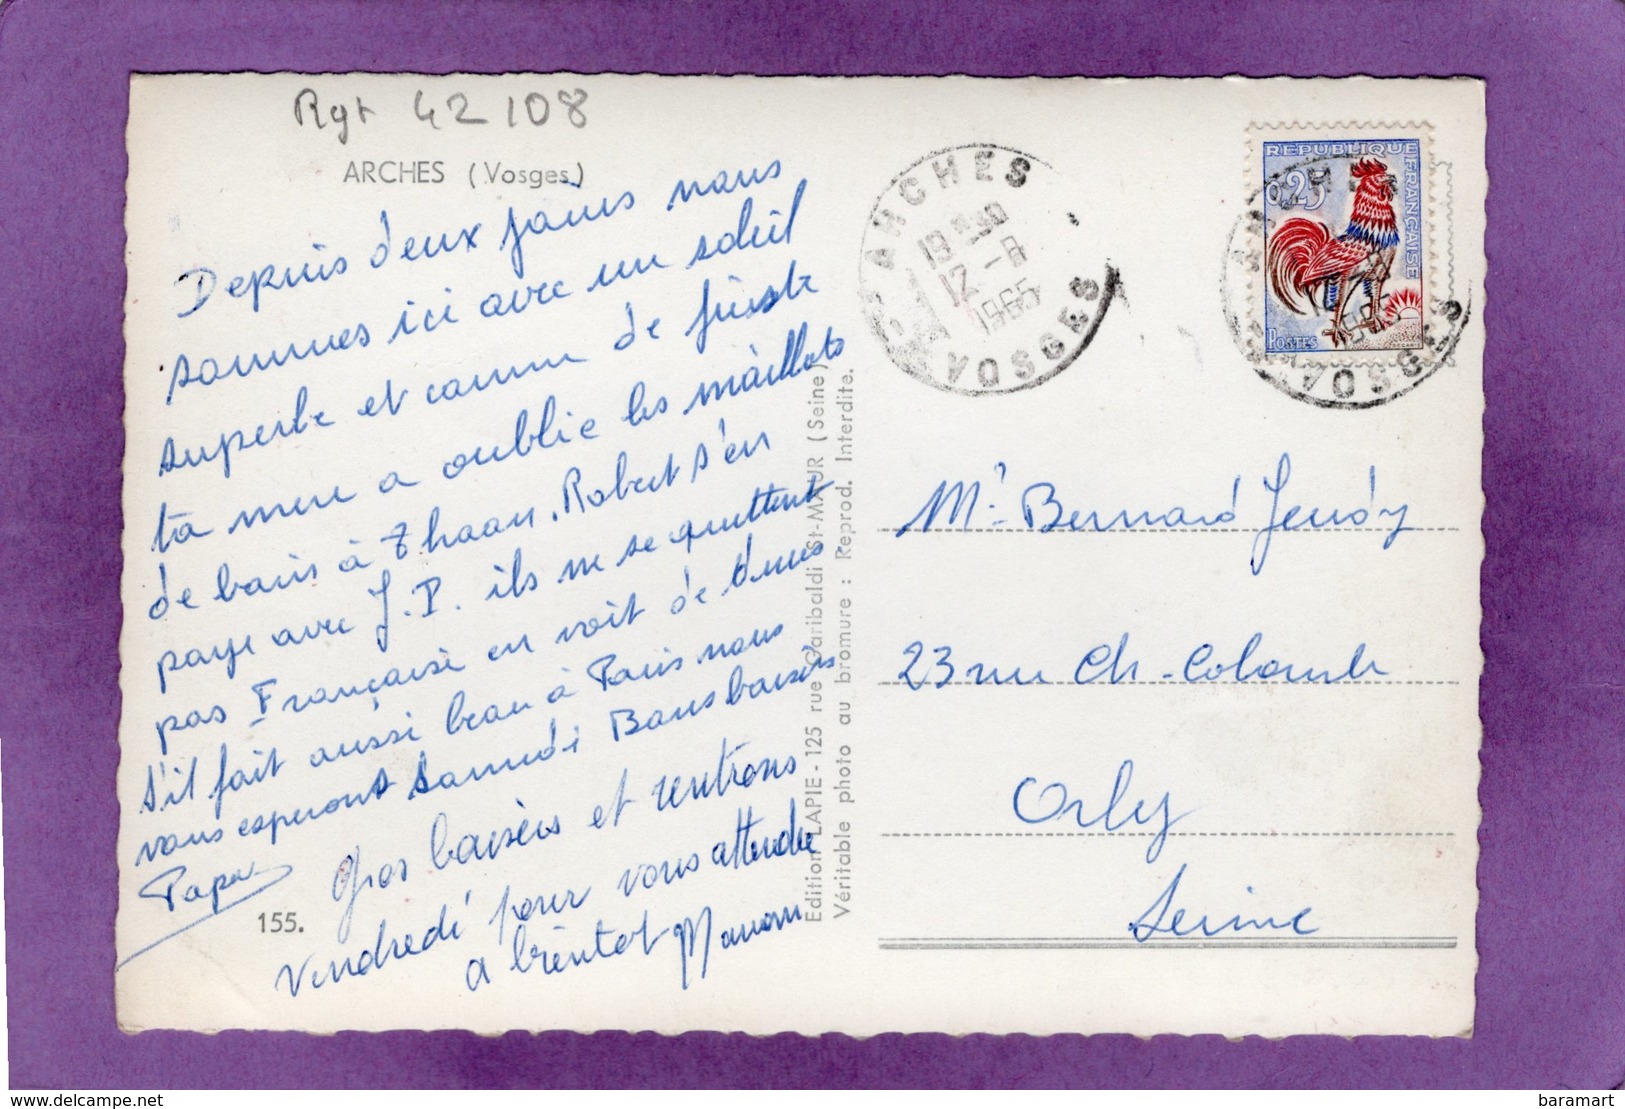 Rgt 42108
ARCHES (Vosges)
Depuis deux jours nous
sommes ici avec un soleil
superbe et comme de juste
ta mere a oublie les maillots
de bains à Thaon. Robert s'en
paye avec J.P. ils ne se quittent
pas Française en voit de dures
s'il fait aussi beau à Paris nous
vous esperons samedi Bons baisers
Papa
Gros baisers et rentrons
Vendredi pour vous attendre
a bientot Maman
155.
Edition LAPIE - 125 rue Garibaldi St-MAUR (Seine)
Véritable photo au bromure : Reprod. Interdite.
ARCHES
19 30
12 - 8
1965
VOSGES
REPUBLIQUE FRANÇAISE
0,25
POSTES
VOSGES
Mr Bernard
23 rue Ch. Colomb
Orly
Seine
delcampe.net
baramart